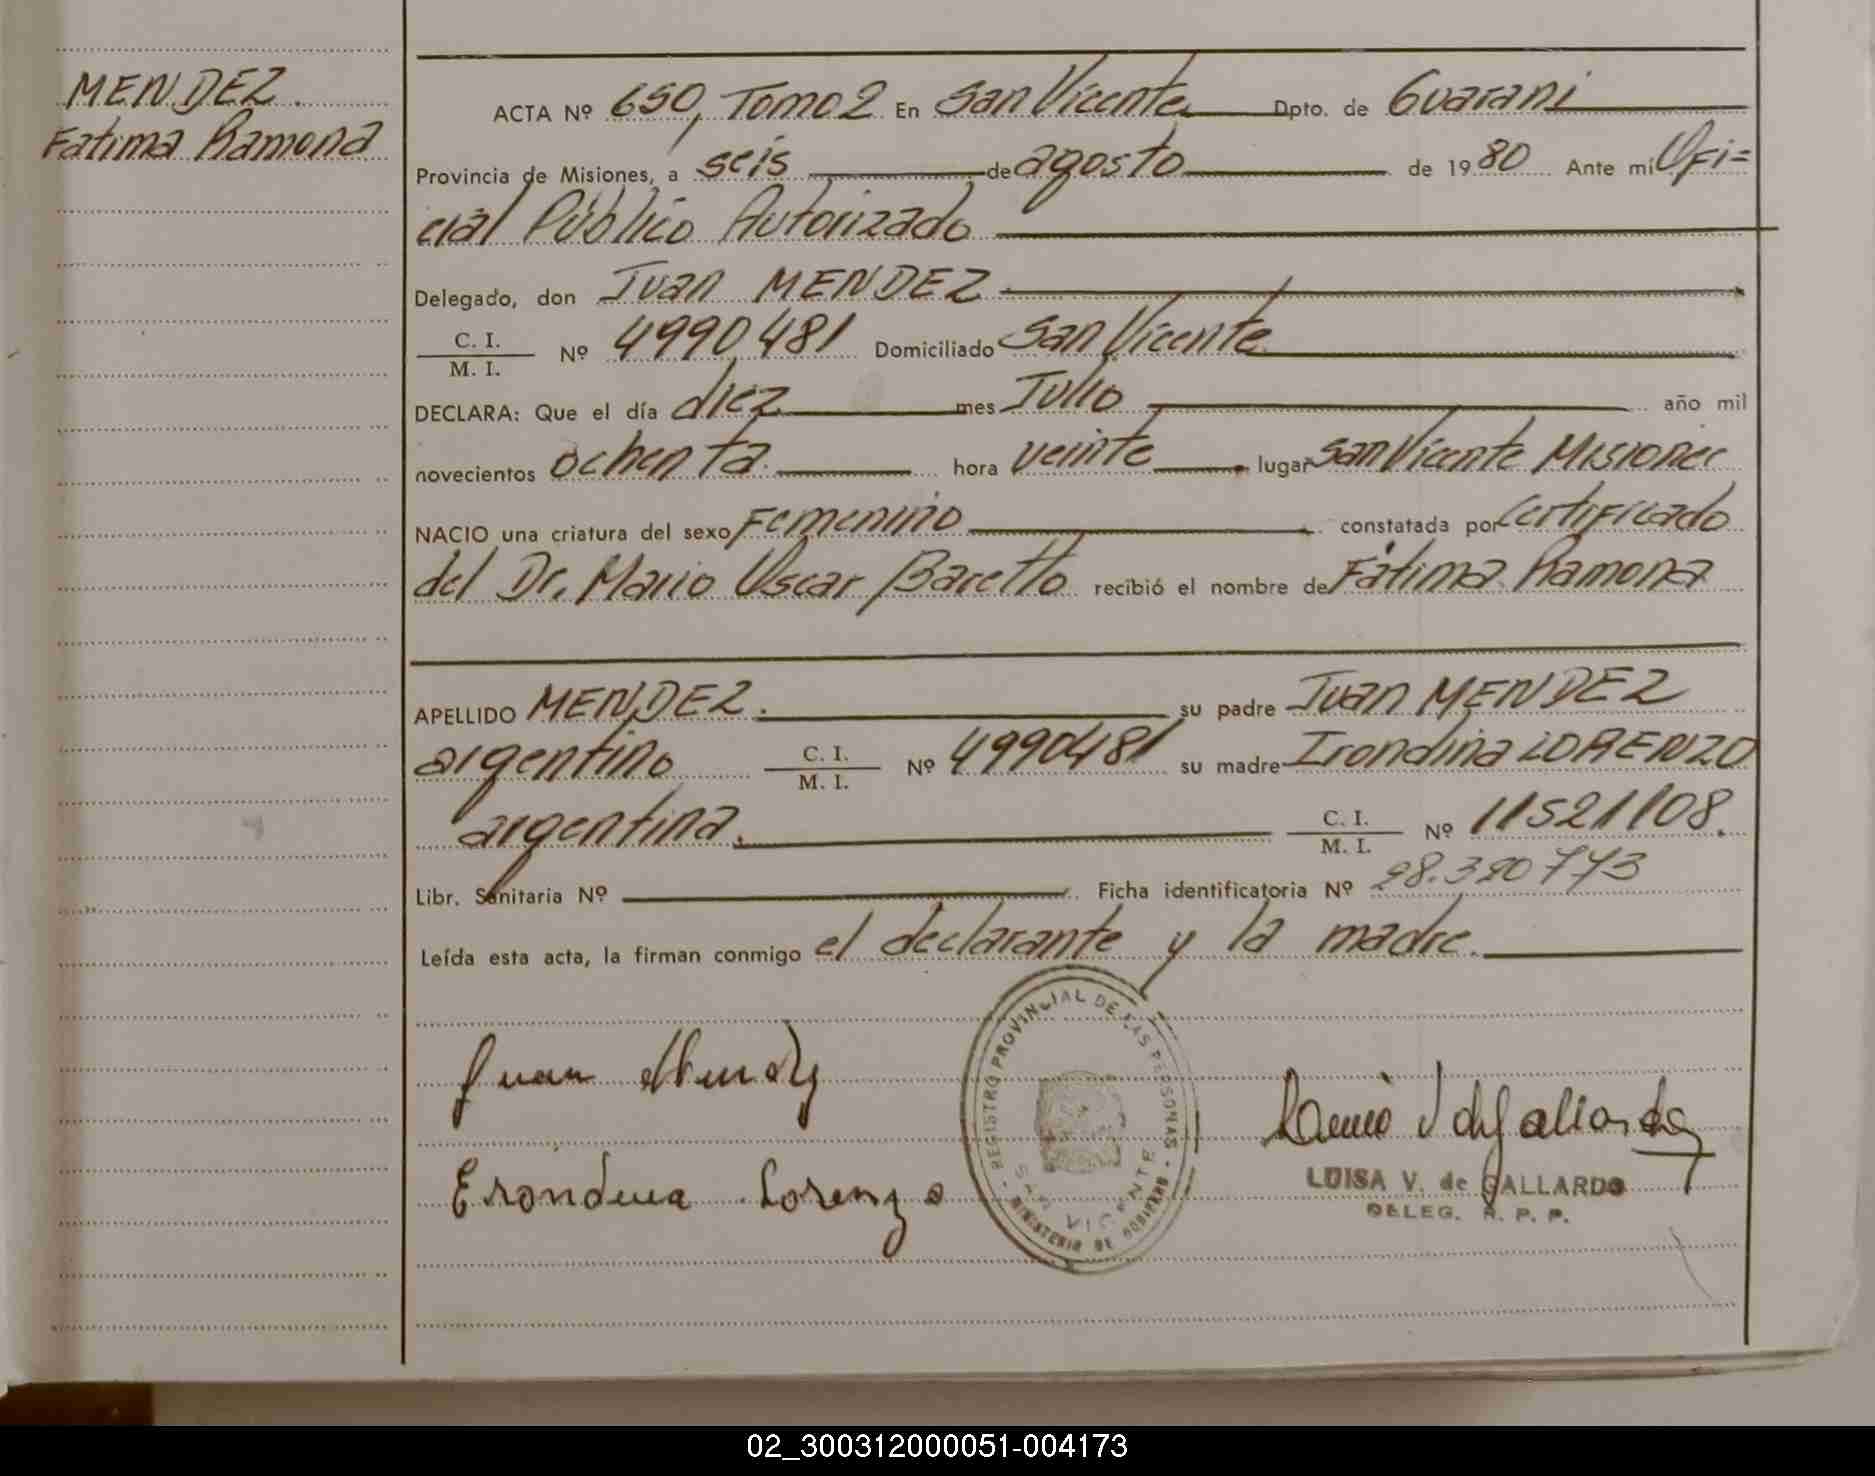 MENDEZ.
Fatima Ramona
ACTA Nº 650, Tomo 2 En San Vicente Dpto. de Guarani
Provincia de Misiones, a seis de agosto de 1980 Ante mí Ofi=
cial Público Autorizado
Delegado, don Juan MENDEZ
C. I.
M. I. Nº 4990481 Domiciliado San Vicente
DECLARA: Que el día diez mes Julio año mil
novecientos ochenta. hora veinte lugar San Vicente Misiones
NACIO una criatura del sexo Femenino constatada por Certificado
del Dr. Mario Oscar Baretto recibió el nombre de Fátima Ramona
APELLIDO MENDEZ. su padre Juan MENDEZ
argentino C. I.
M. I. Nº 4990481 su madre Irondina LORENZO
argentina. C. I.
M. I. Nº 11521108.
Libr. Sanitaria Nº Ficha identificatoria Nº 28.320773
Leída esta acta, la firman conmigo el declarante y la madre.
Juan Mendez
Erondina Lorenzo
REGISTRO PROVINCIAL DE LAS PERSONAS
SAN VICENTE
MINISTERIO DE GOBIERNO
LUISA V. de GALLARDO
DELEG. R. P. P.
02_300312000051-004173